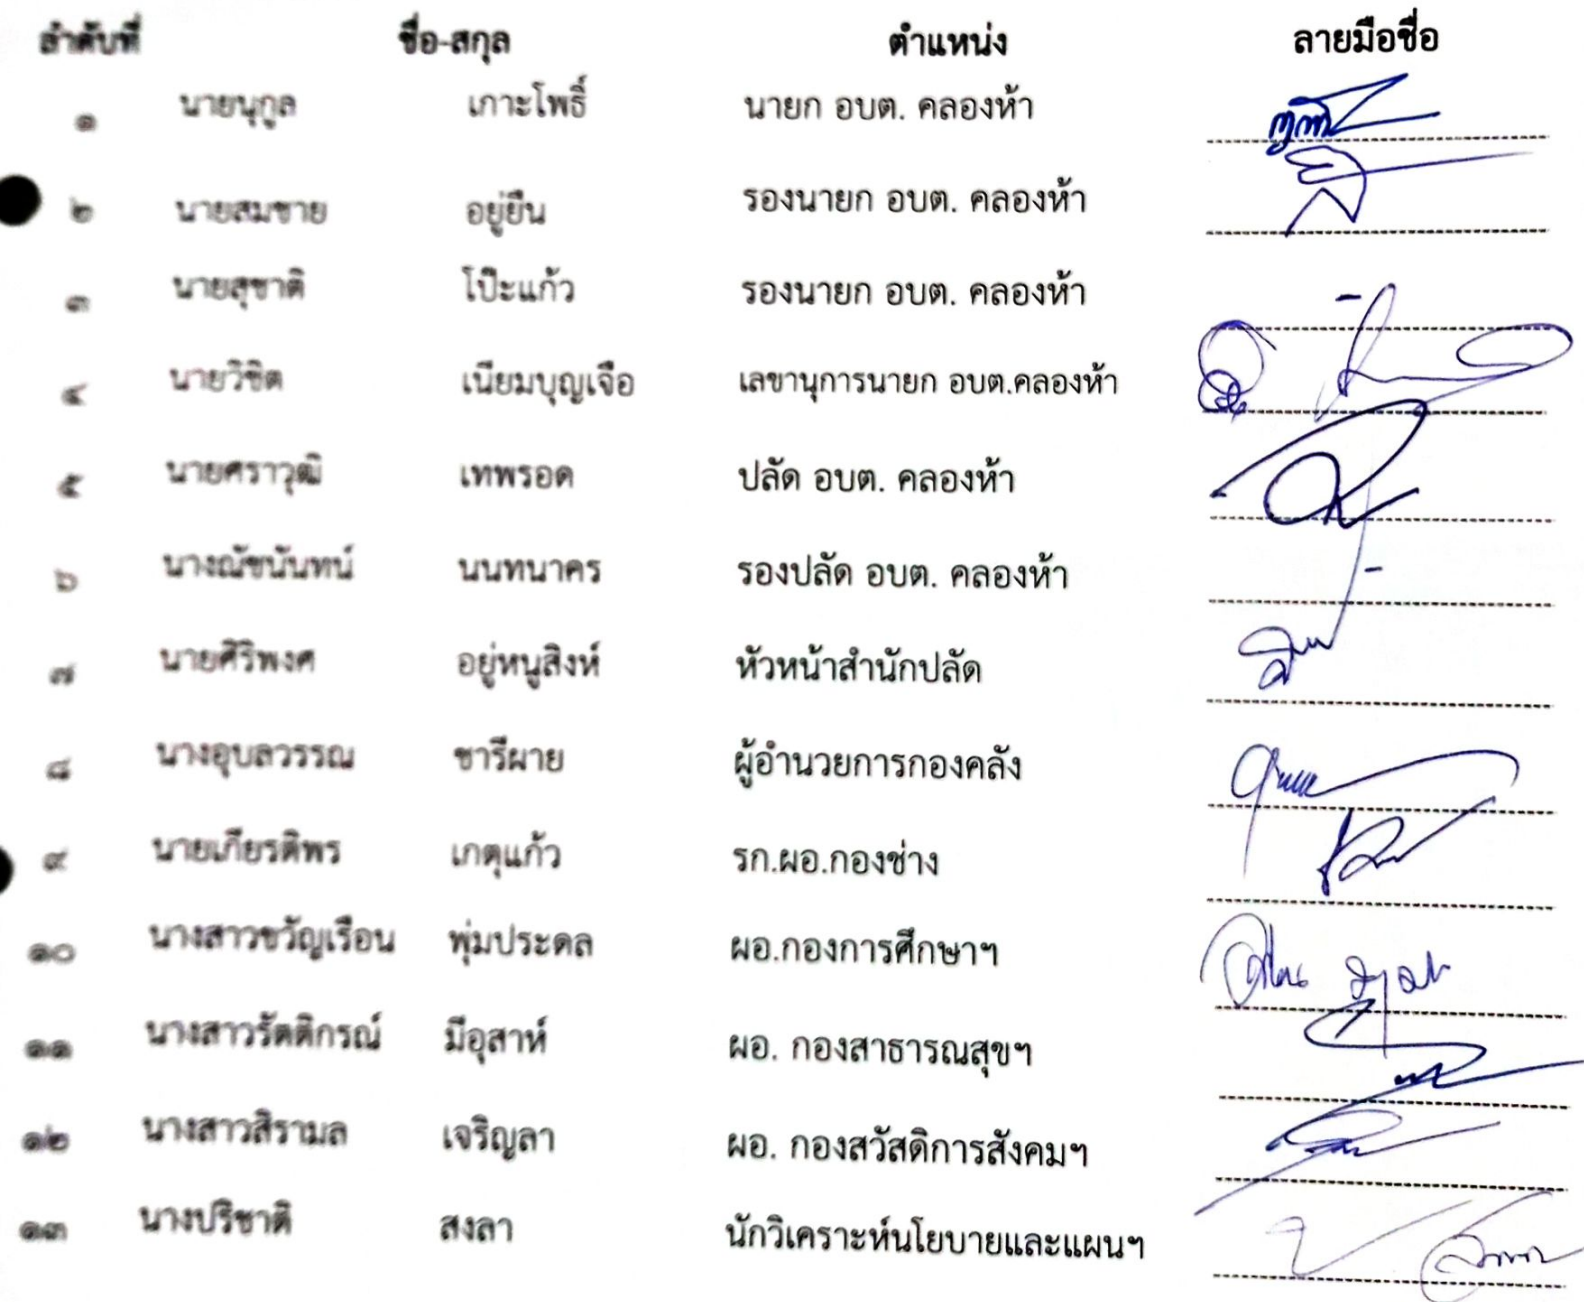 ลำดับที่ ชื่อ-สกุล ตำแหน่ง ลายมือชื่อ
๑ นายนุกูล เกาะโพธิ์ นายก อบต. คลองห้า
๒ นายสมชาย อยู่ยืน รองนายก อบต. คลองห้า
๓ นายสุชาติ โป๊ะแก้ว รองนายก อบต. คลองห้า
๔ นายวิชิต เนียมบุญเจือ เลขานุการนายก อบต.คลองห้า
๕ นายศราวุฒิ เทพรอด ปลัด อบต. คลองห้า
๖ นางณัชนันทน์ นนทนาคร รองปลัด อบต. คลองห้า
๗ นายศิริพงศ อยู่หนูสิงห์ หัวหน้าสำนักปลัด
๘ นางอุบลวรรณ ชารีผาย ผู้อำนวยการกองคลัง
๙ นายเกียรติพร เกตุแก้ว รก.ผอ.กองช่าง
๑๐ นางสาวขวัญเรือน พุ่มประดล ผอ.กองการศึกษาฯ
๑๑ นางสาวรัตติกรณ์ มีอุสาห์ ผอ. กองสาธารณสุขฯ
๑๒ นางสาวสิรามล เจริญลา ผอ. กองสวัสดิการสังคมฯ
๑๓ นางปริชาติ สงลา นักวิเคราะห์นโยบายและแผนฯ